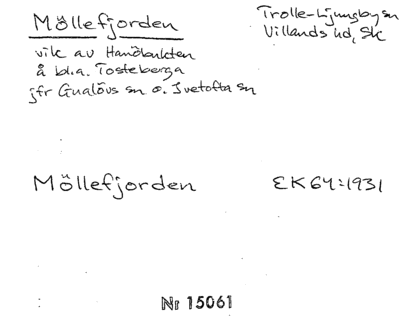 Möllefjorden
Trolle-Ljungby sn
Villands hd, Sk
vik av Hanöbukten
å bl.a. Tosteberga
jfr Gualövs sn o. Ivetofta sn
Möllefjorden
EK 64:1931
Nr 15061